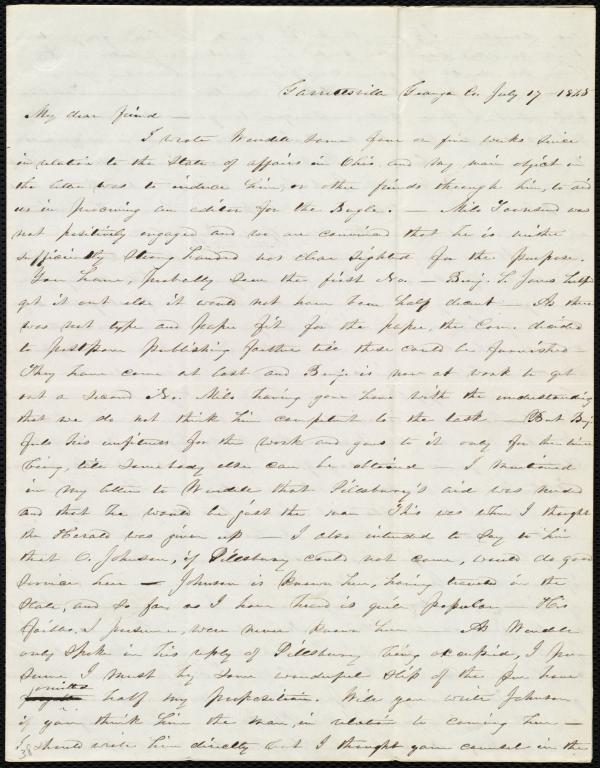 Garrettsville Geauga Co. July 17 1845
My dear friend —
I wrote Wendell some four or five weeks since
in relation to the State of affairs in Ohio, and my main object in
the letter was to induce him, or other friends through him, to aid
us in procuring an editor for the Bugle. — Milo Townsend was
not positively engaged and we are convinced that he is neither
sufficiently strong handed nor clear sighted for the purpose.
You have, probably seen the first No. — Benj. S. Jones helped
get it out else it would not have been half decent — As there
was not type and paper fit for the paper, the Com. decided
to postpone publishing further till these could be furnished —
They have come at last and Benj. is now at work to get
out a second No. Milo having gone home with the understanding
that we do not think him competent to the task — But Benj.
feels his unfitness for the work and goes to it only for the time
being, till somebody else can be obtained — I mentioned
in my letter to Wendell that Pillsbury's aid was needed
and that he would be just the man This was when I thought
the Herald was given up — I also intended to say to him
that O. Johnson, if Pillsbury could not come, would do good
service here — Johnson is known here, having traveled in the
State, and so far as I have heard is quite popular — His
faults, I presume, were never known here — As Wendell
only spoke in his reply of Pillsbury being occupied, I pre-
sume I must by some wonderful slip of the pen have
omitted half my proposition. Will you write Johnson
if you think him the man, in relation to coming here —
I should write him directly but I thought your counsel in the
38